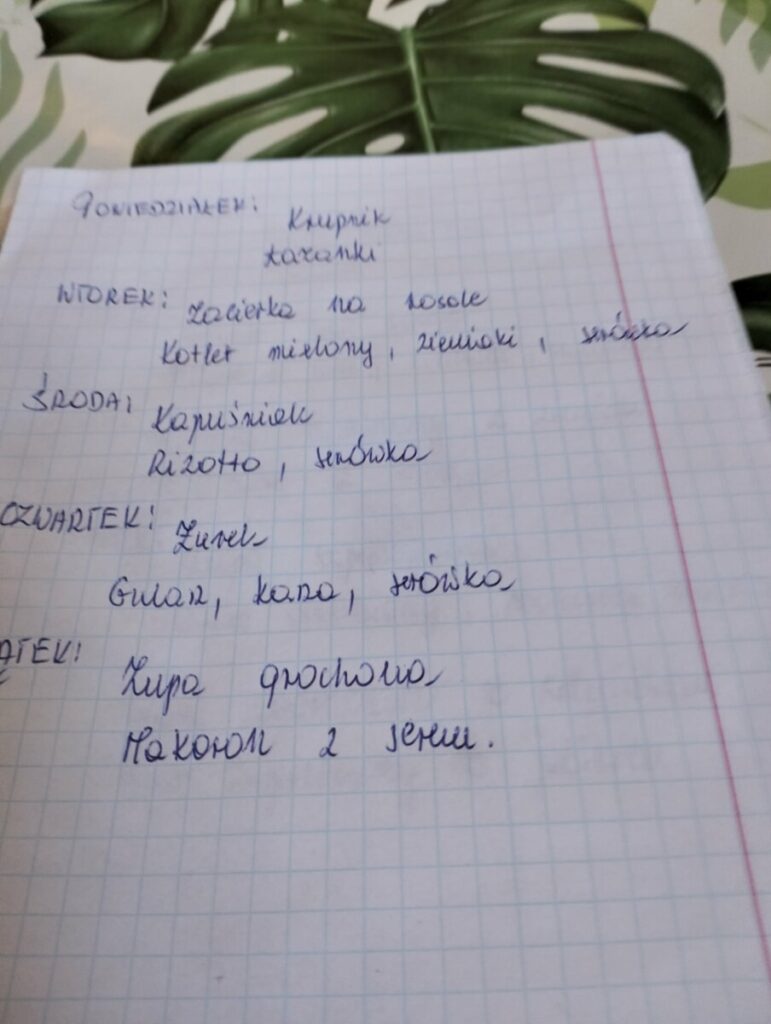 PONIEDZIAŁEK:
Krupnik
Łazanki
WTOREK:
Zacierka na rosole
Kotlet mielony, ziemiaki, surówka
ŚRODA:
Kapuśniak
Rizotto, surówka
CZWARTEK:
Żurek
Gulasz, kasza, surówka
ĄTEK:
Zupa grochowa
Makaron z serem.